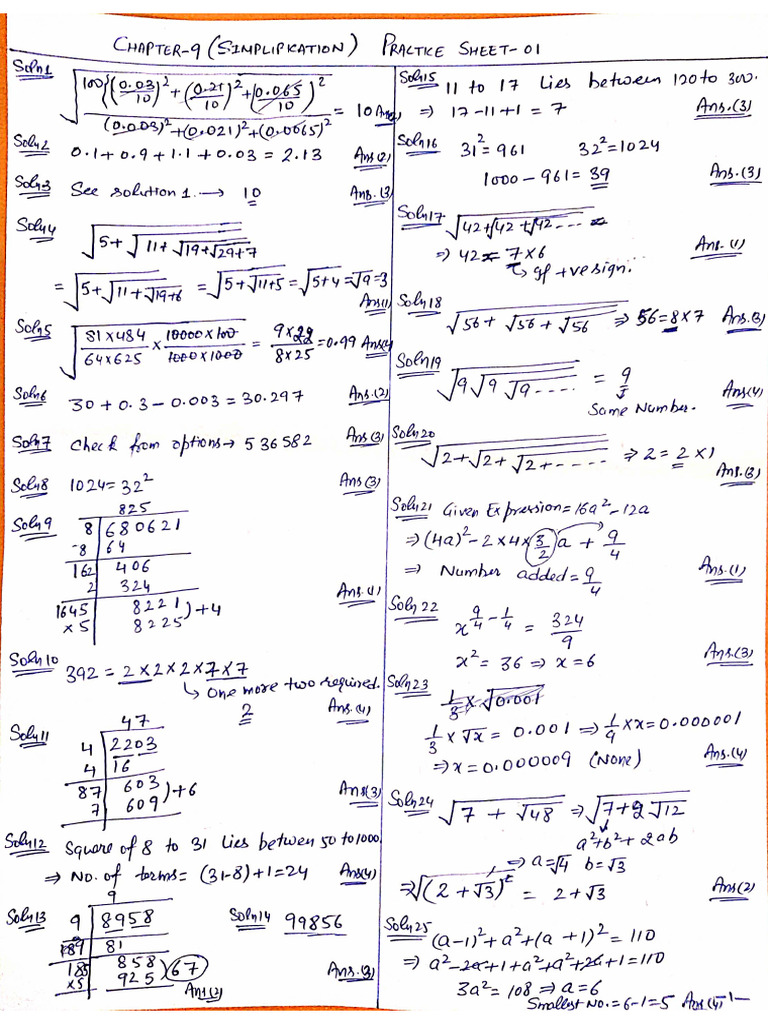 CHAPTER-9 (SIMPLIPICATION) PRACTICE SHEET-01
Soln1 √(100{(0.03/10)² + (0.21/10)² + (0.065/10)²} / ((0.003)² + (0.021)² + (0.0065)²)) = 10 Ans(2)
Soln2 0.1+0.9+1.1+0.03 = 2.13 Ans(2)
Soln3 See solution 1. → 10 Ans.(3)
Soln4 √(5+√(11+√(19+√(29+7
= √(5+√(11+√(19+6 = √(5+√(11+5 = √(5+4 = √9 = 3
Ans(1)
Soln5 √(81×484/64×625 × 10000×100/1000×1000) = 9×22/8×25 = 0.99 Ans(4)
Soln6 30+0.3-0.003 = 30.297 Ans.(2)
Soln7 Check from options → 536582 Ans(3)
Soln8 1024 = 32² Ans(3)
825
Soln9 8 680621
-8 64
162 406
2 324
1645 8221 ) +4 Ans.(1)
×5 8225
Soln10 392 = 2×2×2×7×7
↳ One more two required.
2 Ans.(1)
47
Soln11 4 2203
4 16
87 603 ) +6 Ans(3)
7 609
Soln12 Square of 8 to 31 lies betwen 50 to 1000
⇒ No. of terms = (31-8)+1 = 24 Ans(4)
9
Soln13 9 8958
189 81
185 858 ) 67
×5 925
Ans(2)
Soln14 99856
Ans.(3)
Soln15 11 to 17 Lies between 120 to 300.
⇒ 17-11+1 = 7 Ans.(3)
Soln16 31² = 961 32² = 1024
1000-961 = 39 Ans.(3)
Soln17 √(42+√(42+√(42 ....
⇒ 42 = 7×6 Ans.(1)
↳ if +ve sign..
Soln18 √(56+√(56+√56 ⇒ 56 = 8×7 Ans.(3)
Soln19 √(9√(9√(9 .... = 9
↓
Same Number. Ans(4)
Soln20 √(2+√(2+√(2+ ..... ⇒ 2 = 2×1
Ans.(3)
Soln21 Given Expression = 16a²-12a
⇒ (4a)² - 2×4×3/2 a + 9/4
⇒ Number added = 9/4 Ans.(1)
Soln22 x^(9/4 - 1/4) = 324/9
x² = 36 ⇒ x = 6 Ans.(3)
Soln23 1/3 × √0.001
1/3 × √x = 0.001 ⇒ 1/9 × x = 0.000001
⇒ x = 0.000009 (None) Ans.(4)
Soln24 √(7+√48) ⇒ √(7+2√12)
a²+b²+2ab
⇒ a=√4 b=√3
⇒ √(2+√3)² = 2+√3 Ans(2)
Soln25 (a-1)²+a²+(a+1)² = 110
⇒ a²-2a+1+a²+a²+2a+1 = 110
3a² = 108 ⇒ a = 6
Smallest No. = 6-1 = 5 Ans(4)